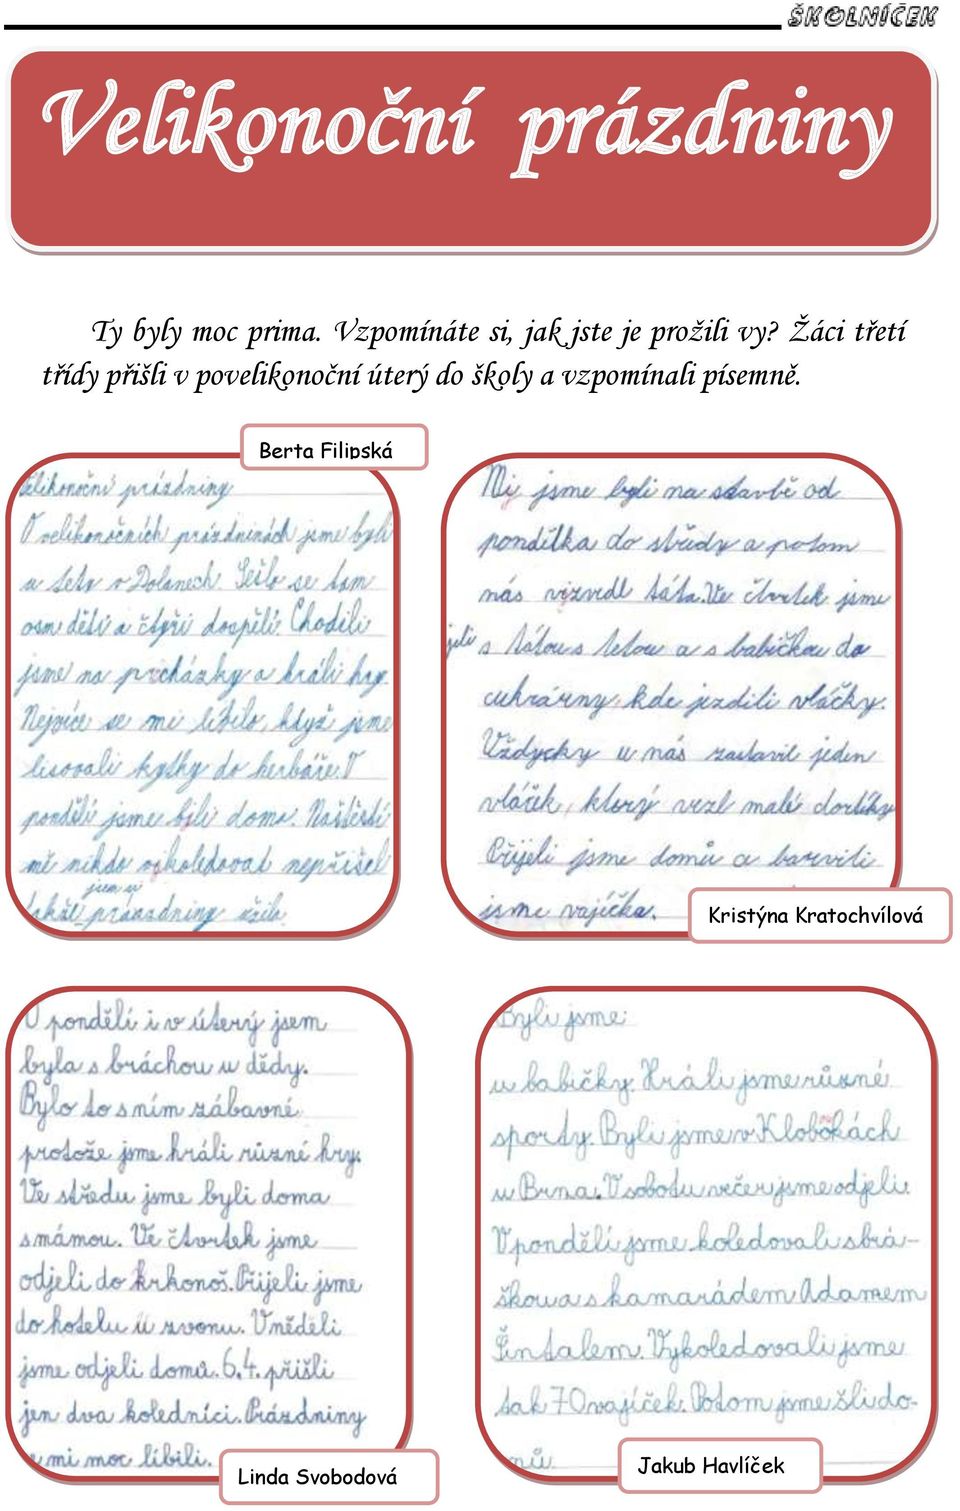 ŠKOLNÍČEK
Velikonoční prázdniny
Ty byly moc prima. Vzpomínáte si, jak jste je prožili vy? Žáci třetí
třídy přišli v povelikonoční úterý do školy a vzpomínali písemně.
Berta Filipská
Velikonoční prázdniny
O velikonočních prázdninách jsme byli
a tety v Dolanech. Sešlo se tam
osm dětí a čtyři dospělí. Chodili
jsme na procházky a hráli hry.
Nejvíce se mi líbilo, když jsme
lisovali kytky do herbáře. V
pondělí jsme byli doma. Naštěstí
mě nikdo vykoledovat nepřišel
jsem si
takže prázdniny užila.
Mi jsme byli na stavbě od
pondělka do středy a potom
nás vizvedl táta. Ve čtvrtek jsme
jeli s tátou s tetou a s babičkou do
cukrárny, kde jezdili vláčky.
Vždycky u nás zastavil jeden
vláček, který vezl malé dortíky
Přijeli jsme domů a barvili
jsme vajíčka.
Kristýna Kratochvílová
V pondělí i v úterý jsem
byla s bráchou u dědy.
Bylo to s ním zábavné
protože jsme hráli různé hry.
Ve středu jsme byli doma
s mámou. Ve čtvrtek jsme
odjeli do krkonoš. Přijeli jsme
do hotelu u zvonu. V neděli
jsme odjeli domů. 6.4. přišli
jen dva koledníci. Prázdniny
se mi moc líbili.
Linda Svobodová
Byli jsme
u babičky. Hráli jsme různé
sporty. Byli jsme v Klobokách
u Brna. V sobotu večer jsme odjeli.
V pondělí jsme koledovali s brá-
škou a s kamarádem Adamem
Šintalem. Vykoledovali jsme
tak 70 vajíček. Potom jsme šli do-
mů.
Jakub Havlíček